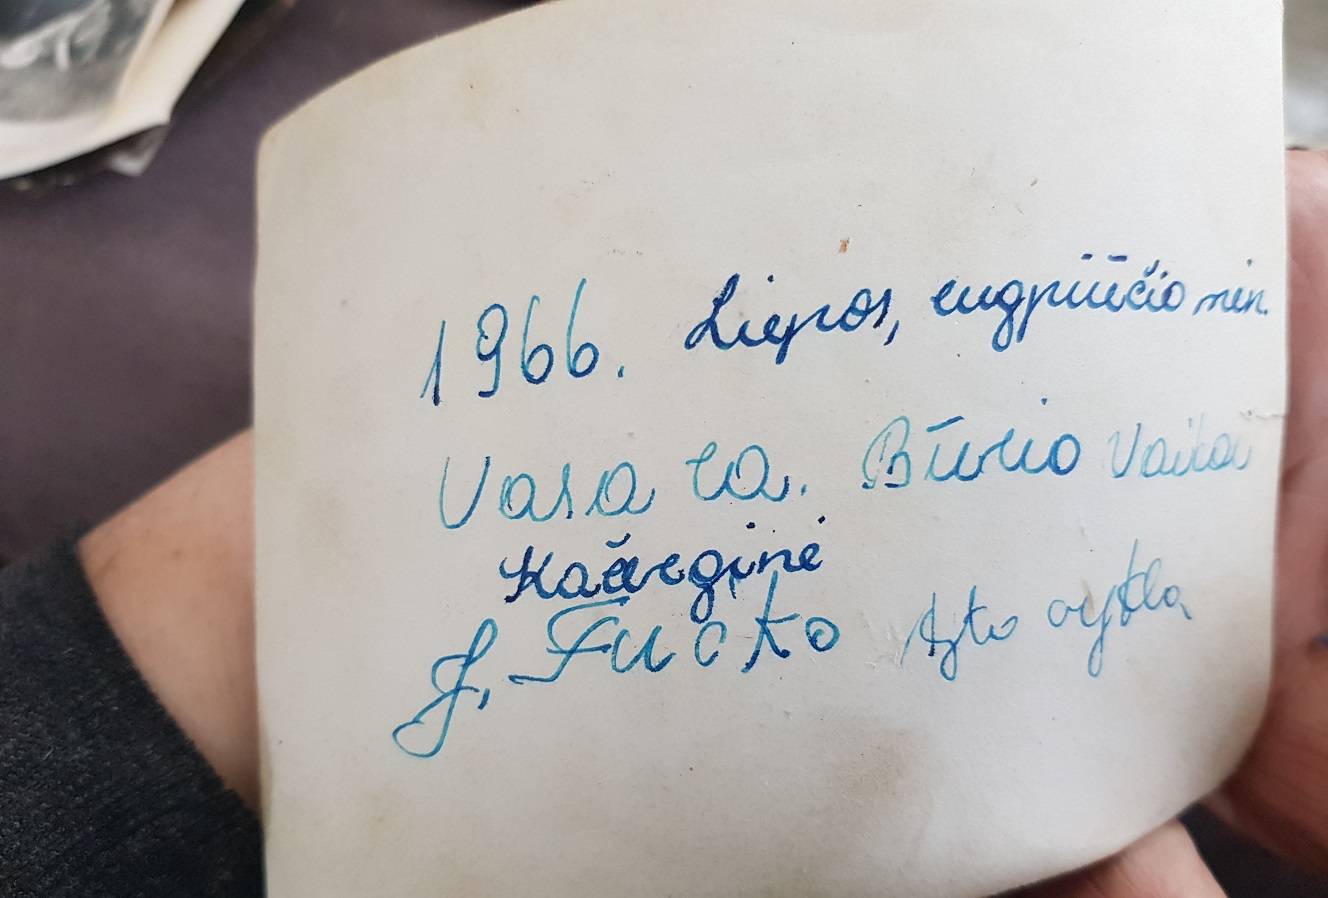 1966. Liepos, rugpiūčio mėn.
Vasara. Būrio Vaikai
Kačerginė
J. Fučiko